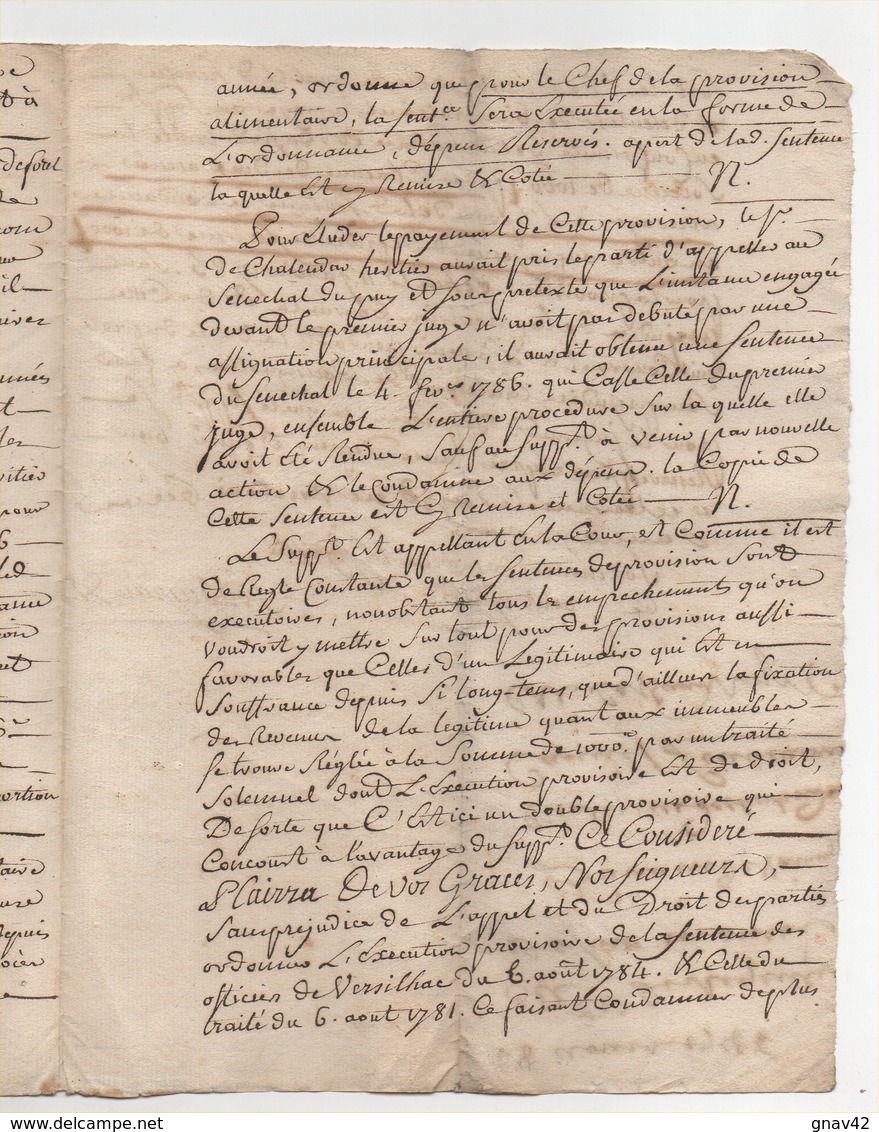 année, ordonne que pour le Chef de la provision
alimentaire, la sent.ce Sera Executée en la forme de
L'ordonnance, dépens Reservés. apert de lad. Sentence
la quelle Est cy Remise & Cotée — N.
Pour Eluder le payement de Cette provision, le Sr
de Chalendar heritier aurait pris le parti d'appeller au
Senechal du puy et Sous pretexte que L'instance engagée
devant le premier juge n'avoit pas debuté par une
assignation principale, il aurait obtenu une Sentence
du Senechal le 4. fevr. 1786. qui Casse Celle du premier
juge, ensemble L'entiere procedure Sur la quelle elle
avoit été Rendue, Sauf au Supp.t à venir par nouvelle
action & le Condamne aux dépens. la Copie de
Cette Sentence est Cy Remise et Cotée — N.
Le Supp.t Est appellant En la Cour, et Comme il est
de Regle Constante que les Sentences de provision Sont
executoires, nonobstant tous les empechements qu'on
voudroit y mettre Sur tout pour des provisions aussi
favorables que Celles d'un Legitimaire qui Est en
Souffrance depuis Si long-tems, que d'ailleurs la fixation
des Revenus de la legitime quant aux immeubles
se trouve Réglée à la Somme de 1000.# par un traité
Solemnel dont L'Execution provisoire Est de droit,
De sorte que C'Est ici un double provisoire qui
Concourt à l'avantage du Supp.t Ce Consideré
Plairra De vos Graces, Nosseigneurs,
Sans prejudice de L'appel et du Droit des parties
ordonner L'Execution provisoire de la Sentence des
officiers de Versilhac du 6. aout 1784. & Celle du
traité du 6. aout 1781. Ce faisant Condamner de plus
delcampe.net
gnav42